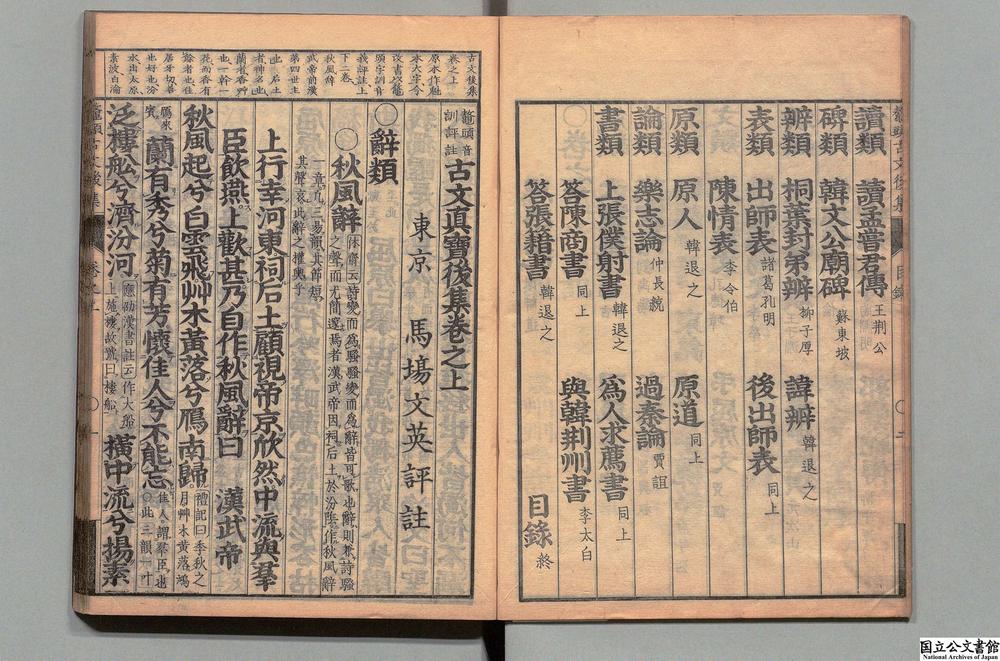 讀類　讀孟嘗君傳 王荆公
碑類　韓文公廟碑 蘇東坡
辨類　桐葉封弟辨 柳子厚　諱辨 韓退之
表類　出師表 諸葛孔明　後出師表 同上
陳情表 李令伯
原類　原人 韓退之　原道 同上
論類　樂志論 仲長統　過秦論 賈誼
書類　上張僕射書 韓退之　爲人求薦書 同上
答陳商書 同上　與韓荆州書 李太白
答張籍書 韓退之
目錄 終
鼇頭音訓評註 古文真寶後集卷之上
東京　馬場文英評註
〇辭類
〇秋風辭 休齋云詩變而爲騷騷變而爲辭皆可歌也辭則兼詩騷之聲而尤簡邃焉者漢武帝因祠后土於汾陰作秋風辭
一章凡三易韻其節短其聲哀此辭之權輿乎
上行幸河東祠后土顧視帝京欣然中流與羣
臣飮燕上歡甚乃自作秋風辭曰　漢武帝
秋風起兮白雲飛艸木黃落兮鴈南歸 禮記曰季秋之月艸木黃落鴻
鴈來賓 蘭有秀兮菊有芳懷佳人兮不能忘 佳人謂羣臣也〇此三韻一叶
泛樓舩兮濟汾河 應劭漢書註云作大船上施樓故號曰樓船 橫中流兮揚素
古文後集
卷之上
下二卷
秋風辭
武帝前漢
第四世主
国立公文書館
National Archives of Japan